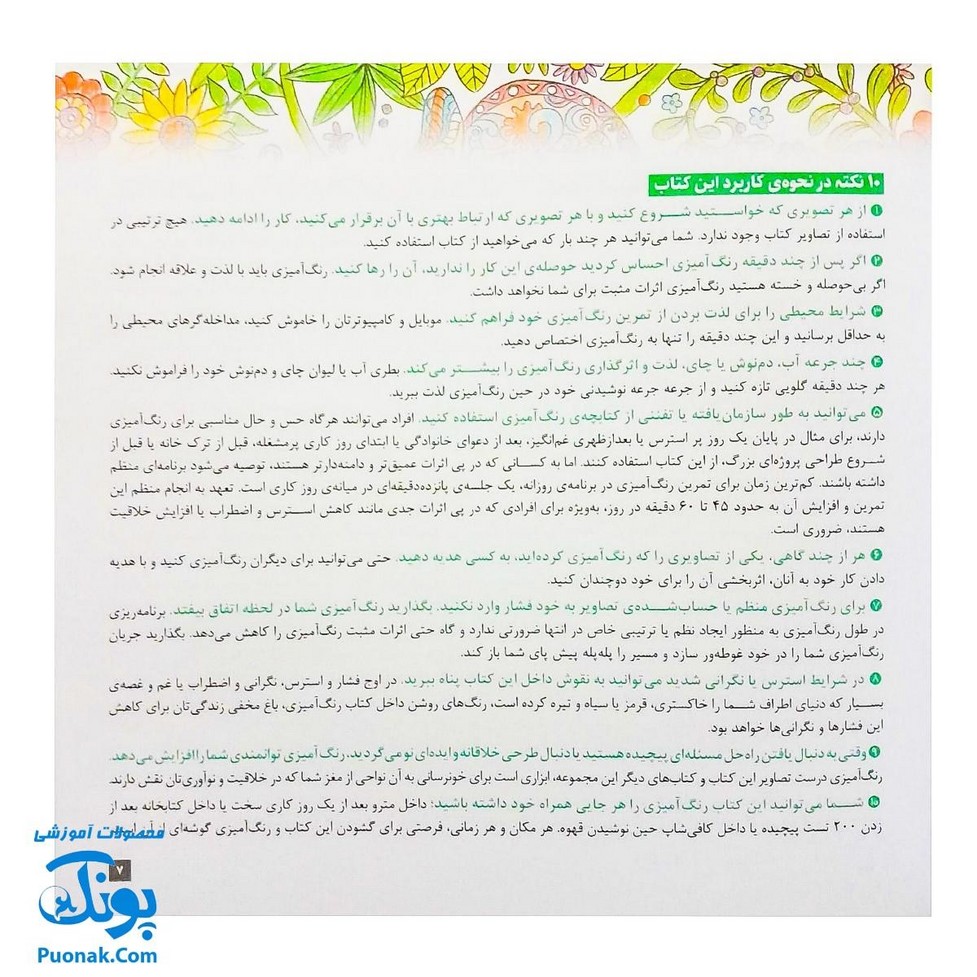 ۱۰ نکته در نحوه‌ی کاربرد این کتاب
۱ از هر تصویری که خواستید شروع کنید و با هر تصویری که ارتباط بهتری با آن برقرار می‌کنید، کار را ادامه دهید. هیچ ترتیبی در
استفاده از تصاویر کتاب وجود ندارد. شما می‌توانید هر چند بار که می‌خواهید از کتاب استفاده کنید.
۲ اگر پس از چند دقیقه رنگ‌آمیزی احساس کردید حوصله‌ی این کار را ندارید، آن را رها کنید. رنگ‌آمیزی باید با لذت و علاقه انجام شود.
اگر بی‌حوصله و خسته هستید رنگ‌آمیزی اثرات مثبت برای شما نخواهد داشت.
۳ شرایط محیطی را برای لذت بردن از تمرین رنگ‌آمیزی خود فراهم کنید. موبایل و کامپیوترتان را خاموش کنید، مداخله‌گرهای محیطی را
به حداقل برسانید و این چند دقیقه را تنها به رنگ‌آمیزی اختصاص دهید.
۴ چند جرعه آب، دم‌نوش یا چای، لذت و اثرگذاری رنگ‌آمیزی را بیشتر می‌کند. بطری آب یا لیوان چای و دم‌نوش خود را فراموش نکنید.
هر چند دقیقه گلویی تازه کنید و از جرعه جرعه نوشیدنی خود در حین رنگ‌آمیزی لذت ببرید.
۵ می‌توانید به طور سازمان‌یافته یا تفننی از کتابچه‌ی رنگ‌آمیزی استفاده کنید. افراد می‌توانند هرگاه حس و حال مناسبی برای رنگ‌آمیزی
دارند، برای مثال در پایان یک روز پر استرس یا بعدازظهری غم‌انگیز، بعد از دعوای خانوادگی یا ابتدای روز کاری پرمشغله، قبل از ترک خانه یا قبل از
شروع طراحی پروژه‌ای بزرگ، از این کتاب استفاده کنند. اما به کسانی که در پی اثرات عمیق‌تر و دامنه‌دارتر هستند، توصیه می‌شود برنامه‌ای منظم
داشته باشند. کم‌ترین زمان برای تمرین رنگ‌آمیزی در برنامه‌ی روزانه، یک جلسه‌ی پانزده‌دقیقه‌ای در میانه‌ی روز کاری است. تعهد به انجام منظم این
تمرین و افزایش آن به حدود ۴۵ تا ۶۰ دقیقه در روز، به‌ویژه برای افرادی که در پی اثرات جدی مانند کاهش استرس و اضطراب یا افزایش خلاقیت
هستند، ضروری است.
۶ هر از چند گاهی، یکی از تصاویری را که رنگ‌آمیزی کرده‌اید، به کسی هدیه دهید. حتی می‌توانید برای دیگران رنگ‌آمیزی کنید و با هدیه
دادن کار خود به آنان، اثربخشی آن را برای خود دوچندان کنید.
۷ برای رنگ‌آمیزی منظم یا حساب‌شده‌ی تصاویر به خود فشار وارد نکنید. بگذارید رنگ‌آمیزی شما در لحظه اتفاق بیفتد. برنامه‌ریزی
در طول رنگ‌آمیزی به منظور ایجاد نظم یا ترتیبی خاص در انتها ضرورتی ندارد و گاه حتی اثرات مثبت رنگ‌آمیزی را کاهش می‌دهد. بگذارید جریان
رنگ‌آمیزی شما را در خود غوطه‌ور سازد و مسیر را پله‌پله پیش پای شما باز کند.
۸ در شرایط استرس یا نگرانی شدید می‌توانید به نقوش داخل این کتاب پناه ببرید. در اوج فشار و استرس، نگرانی و اضطراب یا غم و غصه‌ی
بسیار که دنیای اطراف شما را خاکستری، قرمز یا سیاه و تیره کرده است، رنگ‌های روشن داخل کتاب رنگ‌آمیزی، باغ مخفی زندگی‌تان برای کاهش
این فشارها و نگرانی‌ها خواهد بود.
۹ وقتی به دنبال یافتن راه‌حل مسئله‌ای پیچیده هستید یا دنبال طرحی خلاقانه و ایده‌ای نو می‌گردید، رنگ‌آمیزی توانمندی شما را افزایش می‌دهد.
رنگ‌آمیزی درست تصاویر این کتاب و کتاب‌های دیگر این مجموعه، ابزاری است برای خونرسانی به آن نواحی از مغز شما که در خلاقیت و نوآوری‌تان نقش دارند.
۱۰ شما می‌توانید این کتاب رنگ‌آمیزی را هر جایی همراه خود داشته باشید؛ داخل مترو بعد از یک روز کاری سخت یا داخل کتابخانه بعد از
زدن ۲۰۰ تست پیچیده یا داخل کافی‌شاپ حین نوشیدن قهوه. هر مکان و هر زمانی، فرصتی برای گشودن این کتاب و رنگ‌آمیزی گوشه‌ای از
۷
محصولات آموزشی
پونک
Puonak.Com